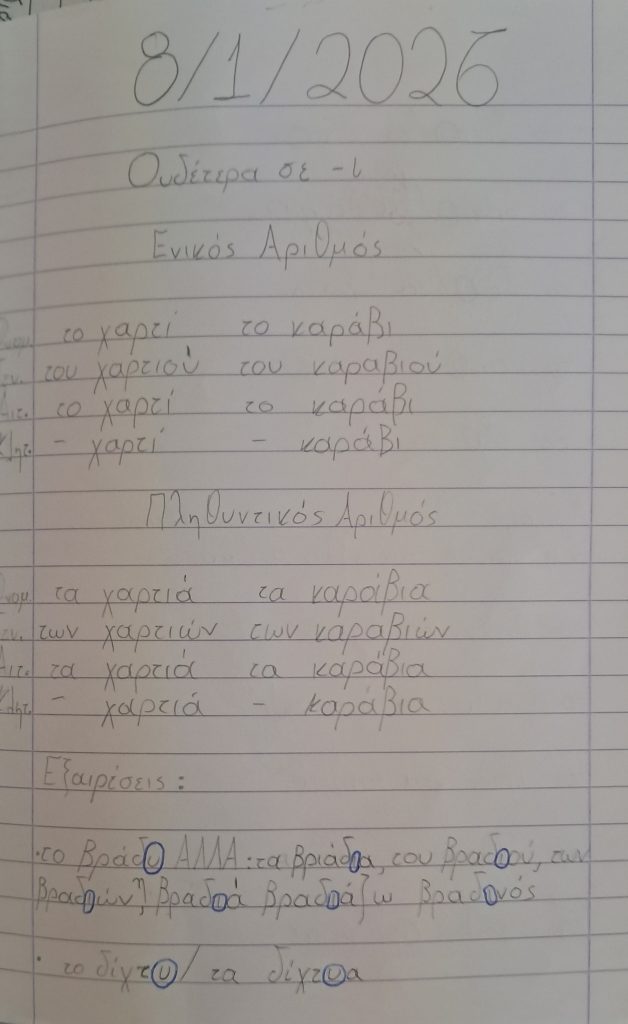 8/1/2026
Ουδέτερα σε -ι
Ενικός Αριθμός
Ονομ. το χαρτί το καράβι
Γεν. του χαρτιού του καραβιού
Αιτ. το χαρτί το καράβι
Κλητ. - χαρτί - καράβι
Πληθυντικός Αριθμός
Ονομ. τα χαρτιά τα καράβια
Γεν. των χαρτιών των καραβιών
Αιτ. τα χαρτιά τα καράβια
Κλητ. - χαρτιά - καράβια
Εξαιρέσεις:
·το βράδυ ΑΛΛΑ: τα βριάδια, του βραδιού, των
βραδιών, βραδιά βραδιάζω βραδινός
· το δίχτυ/ τα δίχτυα